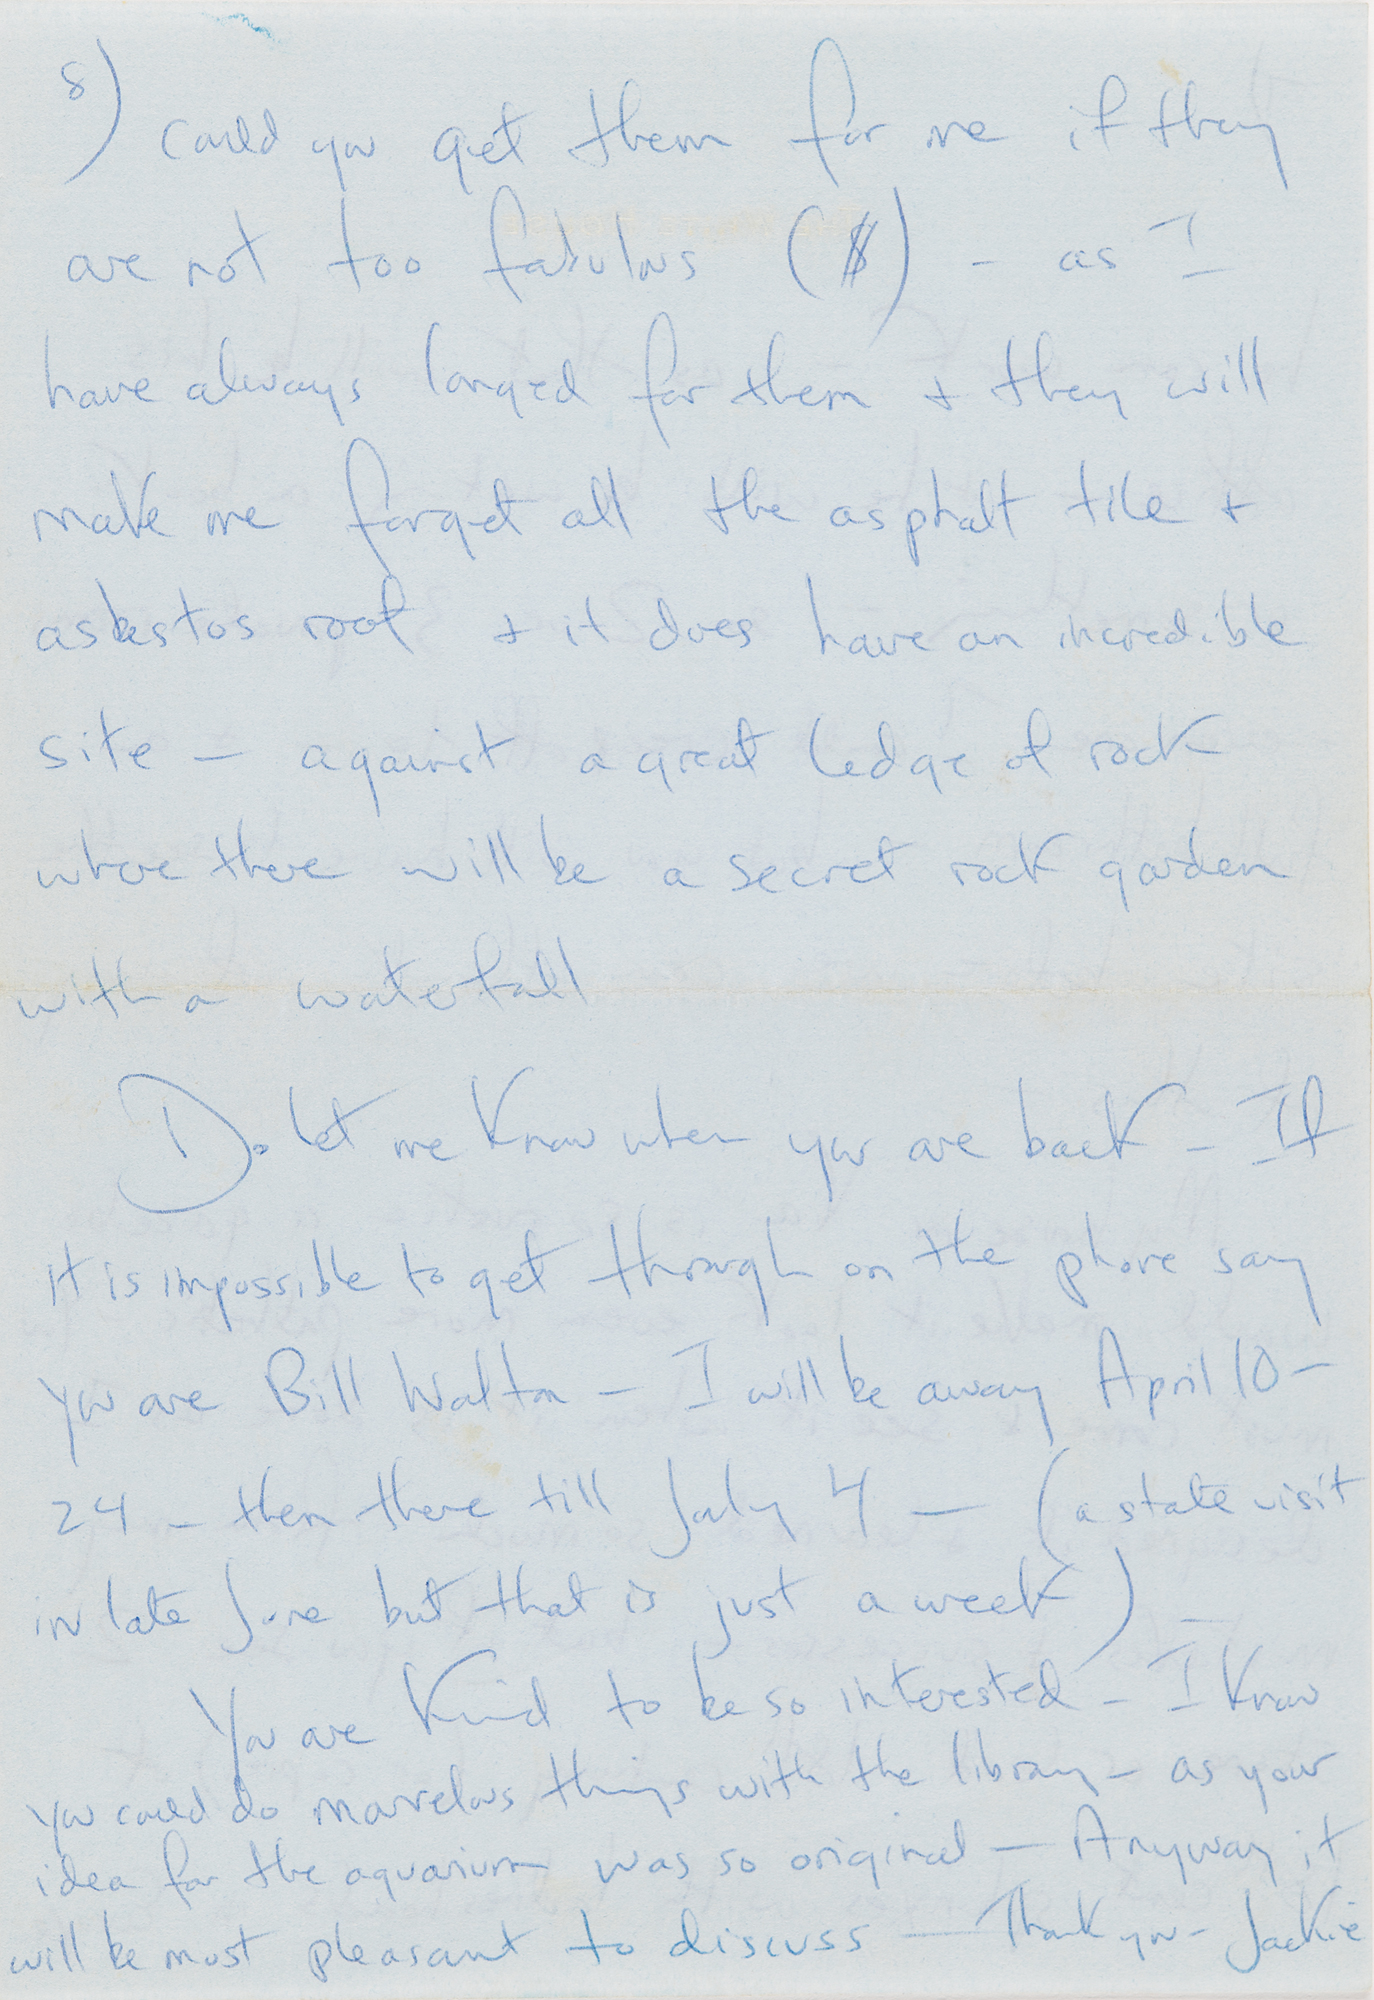 8) Could you get them for me if they
are not too fabulous ($) – as I
have always longed for them + they will
make me forget all the asphalt tile +
asbestos roof + it does have an incredible
site – against a great ledge of rock
where there will be a secret rock garden
with a waterfall
Do let me know when you are back – If
it is impossible to get through on the phone say
you are Bill Walton – I will be away April 10 –
24 – then there till July 4 – (a state visit
in late June but that is just a week) –
You are kind to be so interested – I know
you could do marvelous things with the library – as your
idea for the aquarium was so original – Anyway it
will be most pleasant to discuss – Thank you – Jackie